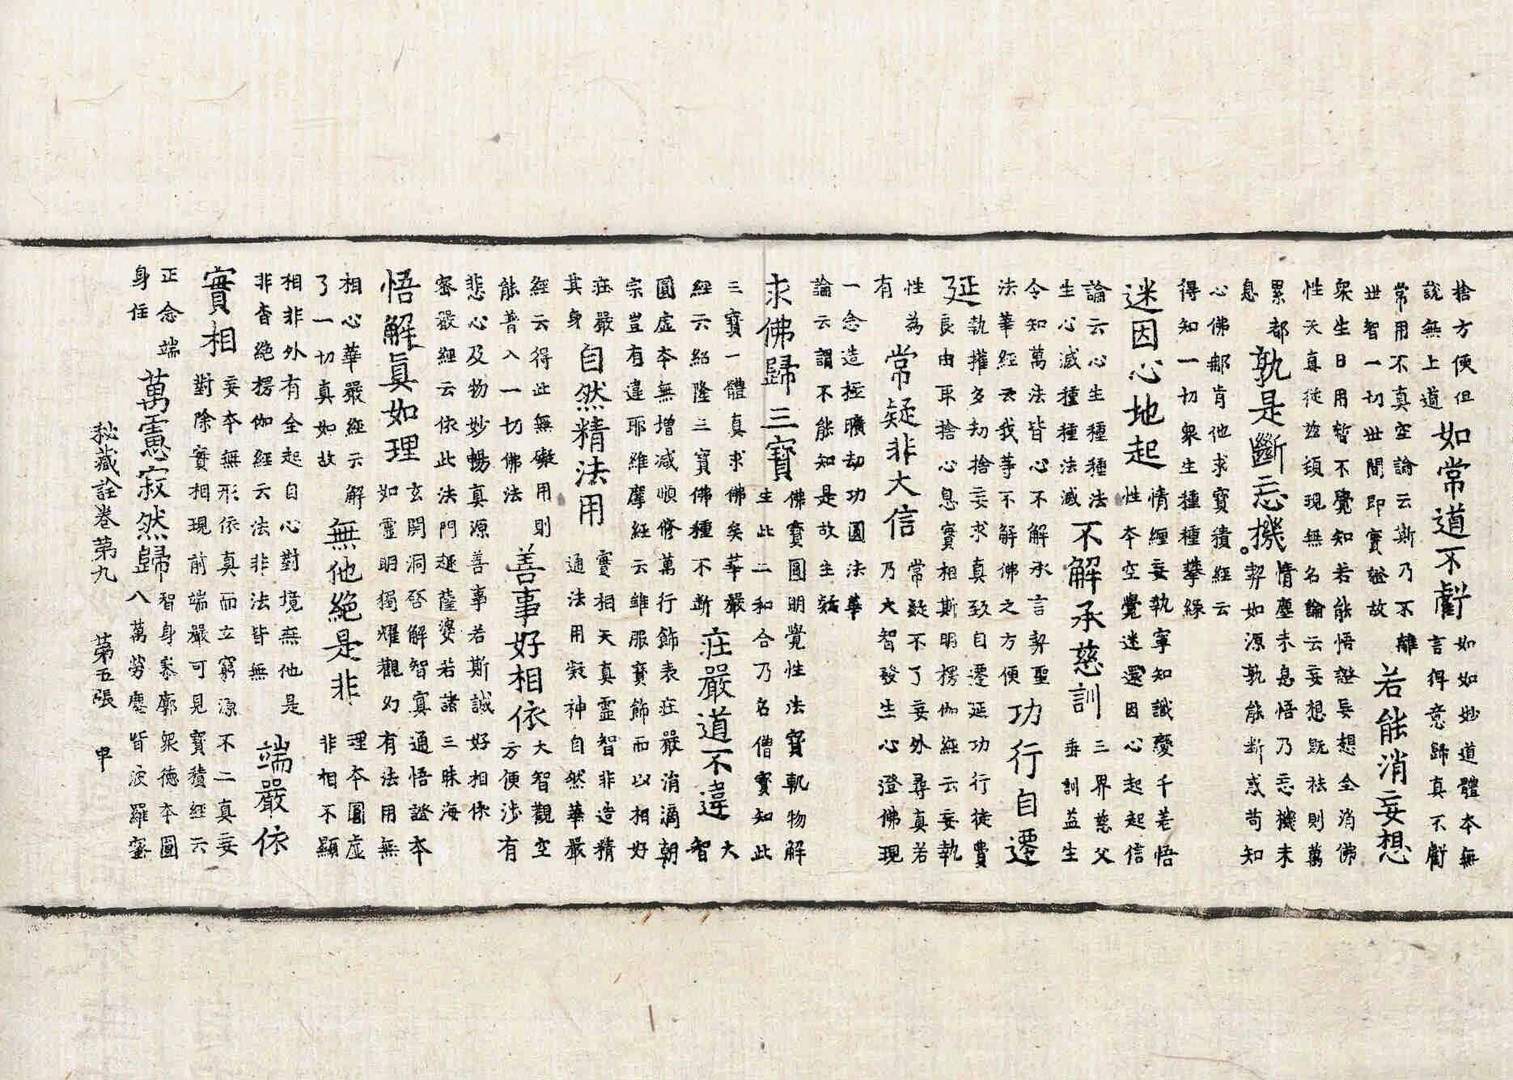 捨方便但
說無上道
如常道不虧
如如妙道體本無
言得意歸真不虧
常用不真空論云斯乃不離
世智一切世間即實謚故
若能消妄想
衆生日用暫不覺知若能悟證妄想全消佛
性天真從茲頓現無名論云妄想既祛則萬
累都
息
孰是斷忘機
情塵未息悟乃忘機未
契如源孰能斷惑苟知
心佛那肯他求寶積經云
得知一切衆生種種攀緣
迷因心地起
情纏妄執寧知識變千差悟
性本空覺迷還因心起起信
論云心生種種法
生心滅種種法滅
不解承慈訓
三界慈父
垂訓益生
令知萬法皆心不解承言契聖
法華經云我等不解佛之方便
功行自遷
延
執擭多劫捨妄求真致自遷延功行徒費
良由取捨心息實相斯明楞伽經云妄執
性為
有
常疑非大信
常疑不了妄外尋真若
乃大智發生心澄佛現
一念造極曠劫功圓法華
論云謂不能知是故生疑
求佛歸三寶
佛寶圓明覺性法寶軌物解
生此二和合乃名僧寶知此
三寶一體真求佛矣華嚴
經云紹隆三寶佛種不斷
莊嚴道不違
大
智
圓虛本無增減順修萬行飾表莊嚴消滴朝
宗豈有違耶維摩經云雖服寶飾而以相好
莊嚴
其身
自然精法用
實相天真靈智非造精
通法用凝神自然華嚴
經云得此無礙用則
能普入一切佛法
善事好相依
大智觀空
方便涉有
悲心及物妙暢真源善事若斯誠好相依
密嚴經云依此法門趣薩婆若諸三昧海
悟解眞如理
玄開洞啓解智冥通悟證本
如靈明獨耀觀幻有法用無
相心華嚴經云解
了一切真如故
無他絕是非
理本圓虛
非相不顯
相非外有全起自心對境無他是
非杳絕楞伽經云法非法皆無
端嚴依
實相
妄本無形依真而立窮源不二真妄
對除實相現前端嚴可見寶積經云
正念端
身住
萬慮寂然歸
智身寥廓衆德本圓
八萬勞塵皆波羅蜜
秘藏詮卷第九　第五張　申